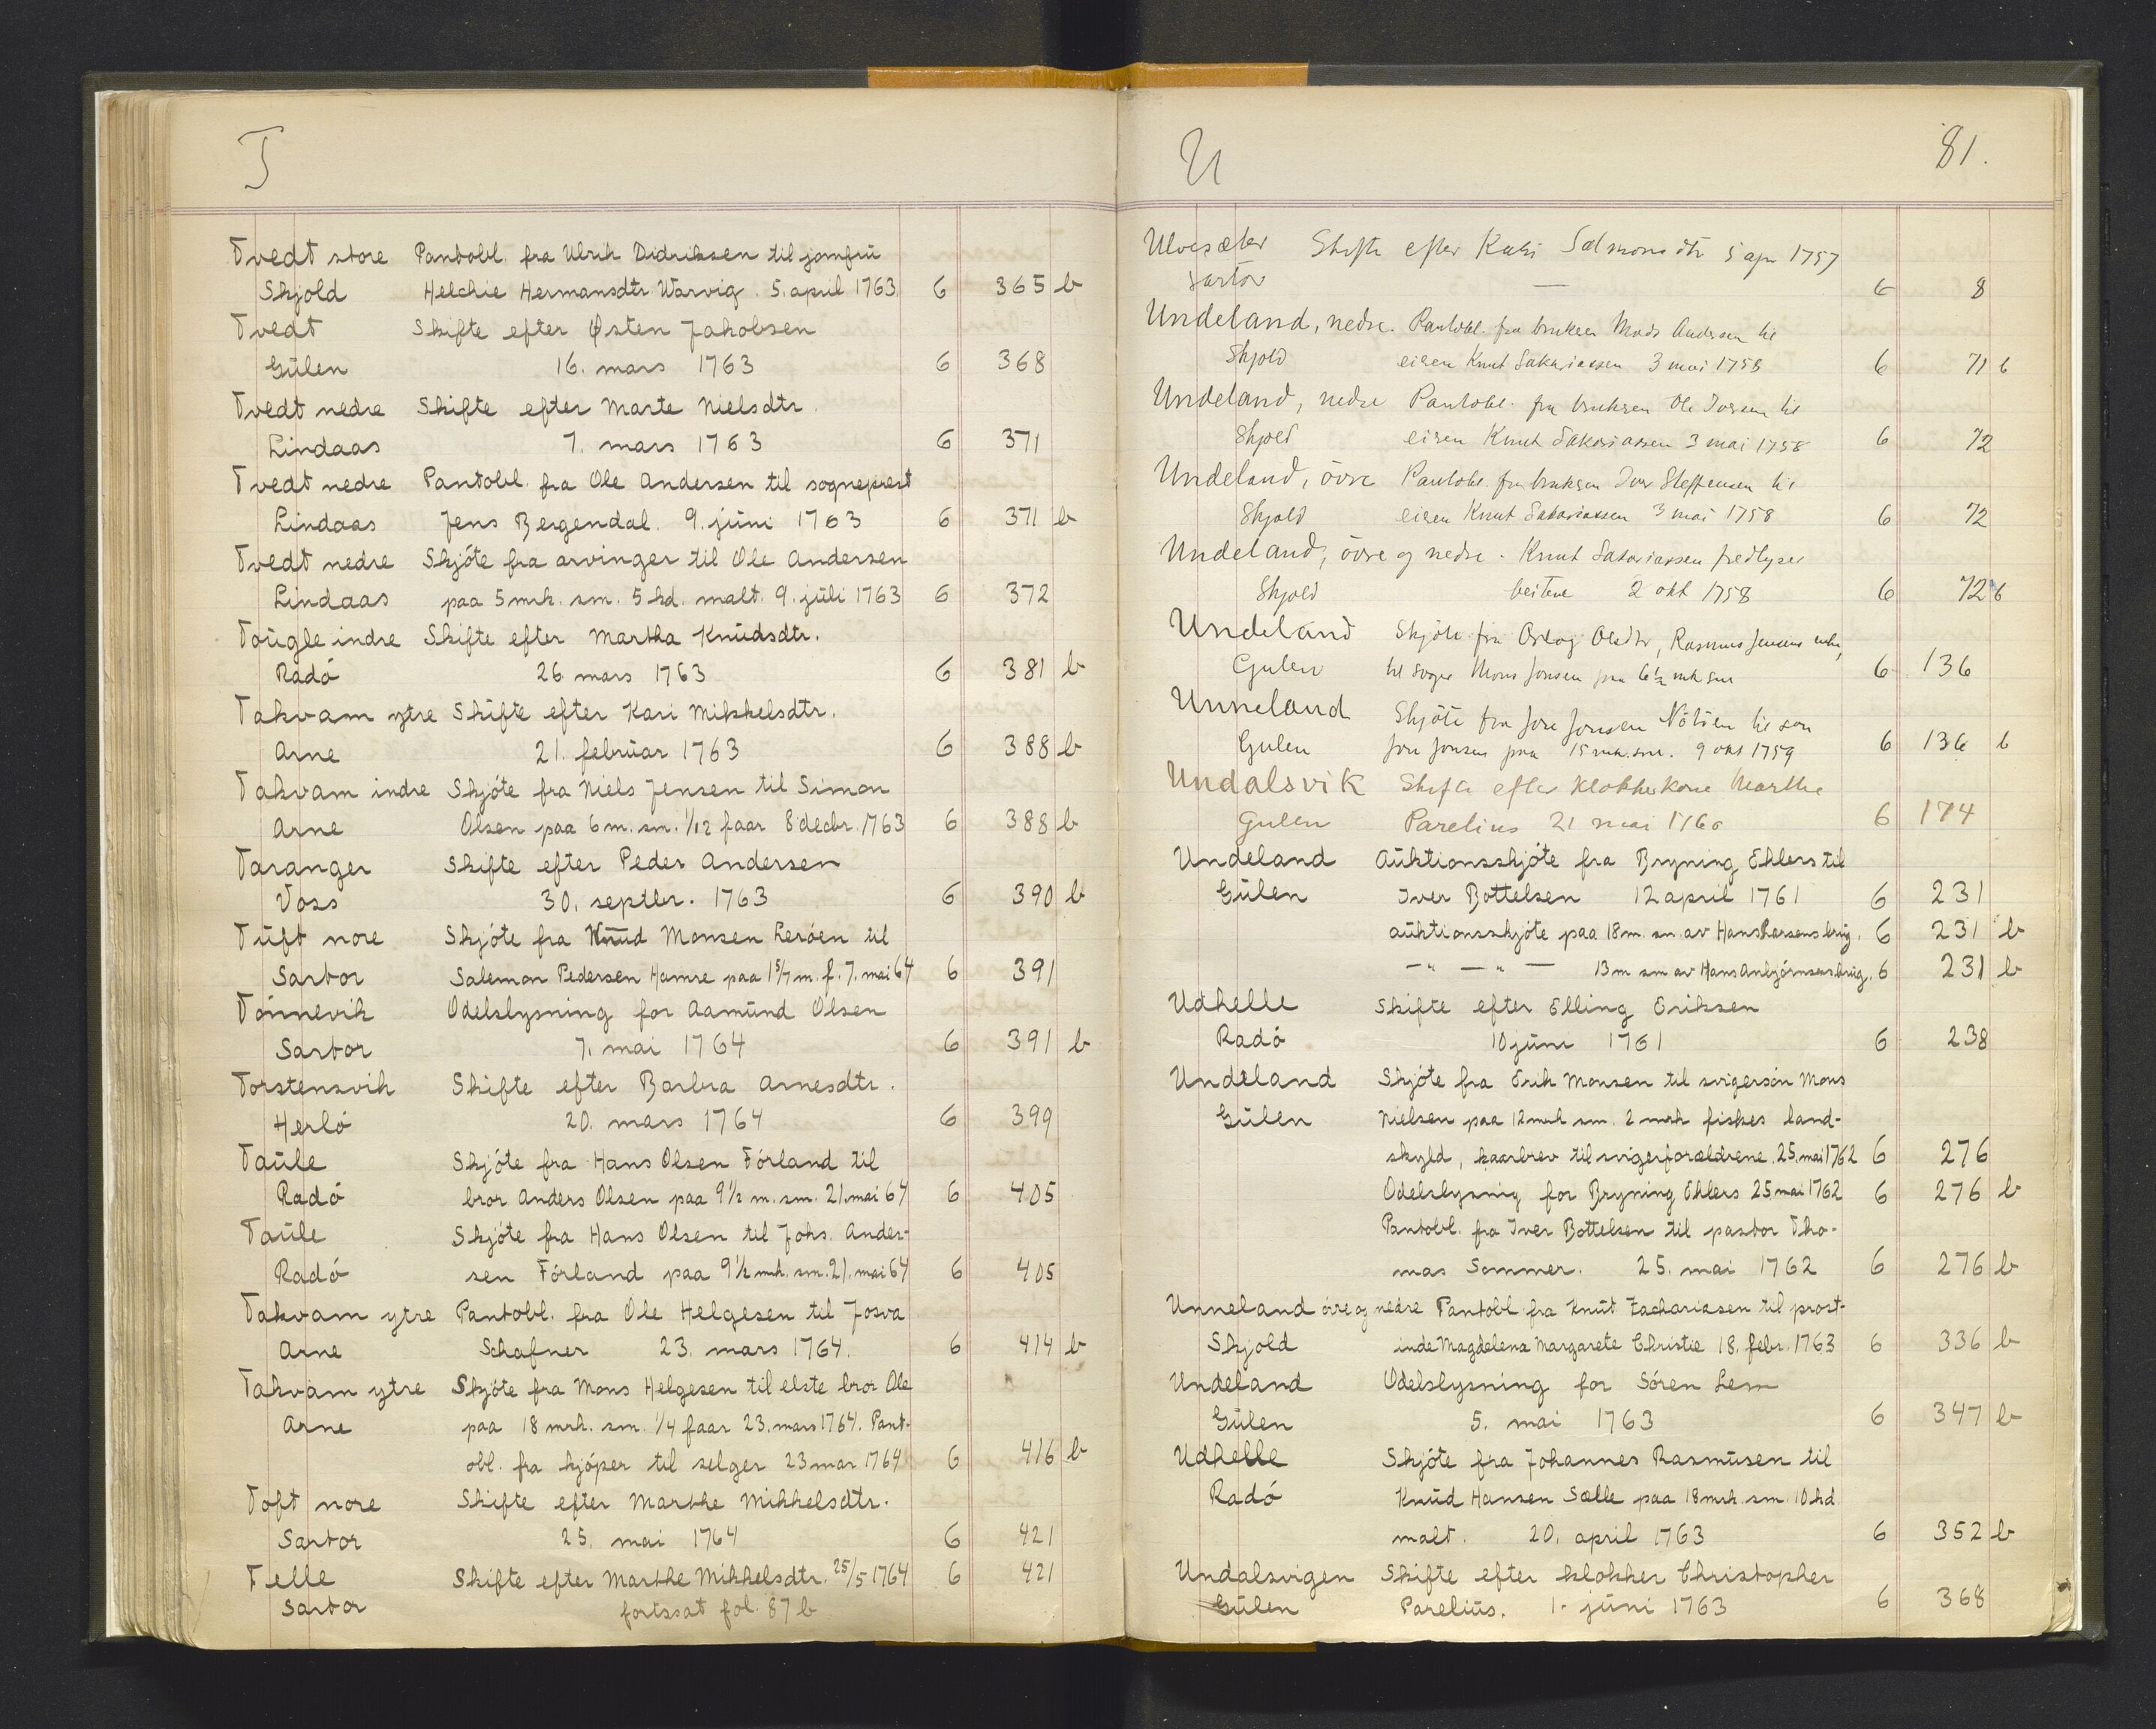 T
Tvedt store Pantobl. fra Ulrik Didriksen til jomfru
Skjold Helchie Hermansdtr. Warvig. 5. april 1763 6 365 b
Tvedt Skifte efter Østen Jakobsen
Gulen 16. mars 1763 6 368
Tvedt nedre Skifte efter Marte Nielsdtr.
Lindaas 7. mars 1763 6 371
Tvedt nedre Pantobl. fra Ole Andersen til sogneprest
Lindaas Jens Bergendal. 9. juni 1763 6 371 b
Tvedt nedre Skjöte fra arvinger til Ole Andersen
Lindaas paa 5 mrk. sm. 5 kd. malt. 9. juli 1763 6 372
Tougle indre Skifte efter Martha Knudsdtr.
Radö 26 mars 1763 6 381 b
Takvam ytre Skifte efter Kari Mikkelsdtr.
Arne 21. februar 1763 6 388 b
Takvam indre Skjöte fra Niels Jensen til Simon
Arne Olsen paa 6 m. sm. 1/12 faar 8 decbr. 1763 6 388 b
Taranger Skifte efter Peder Andersen
Voss 30. septbr. 1763 6 390 b
Tuft nore Skjöte fra Knud Monsen Leröen til
Sartor Salemon Pedersen Hamre paa 1 5/7 m. f. 7. mai 64 6 391
Tönnevik Odelslysning for Aamund Olsen
Sartor 7. mai 1764 6 391 b
Torstensvik Skifte efter Barbra Arnesdtr.
Herlö 20. mars 1764 6 399
Taule Skjöte fra Hans Olsen Förland til
Radö bror Anders Olsen paa 9 1/2 m. sm. 21. mai 64 6 405
Taule Skjöte fra Hans Olsen til Johs. Ander-
Radö sen Förland paa 9 1/2 mrk. sm. 21. mai 64 6 405
Takvam ytre Pantobl. fra Ole Helgesen til Josva
Arne Schafner 23. mars 1764. 6 414 b
Takvam ytre Skjöte fra Mons Helgesen til elste bror Ole
Arne paa 18 mrk. sm. 1/4 faar 23. mars 1764. Pant-
obl. fra kjöper til selger 23 mar 1764 6 416 b
Toft nore Skifte efter Marthe Mikkelsdtr.
Sartor 25. mai 1764 6 421
Telle Skifte efter Marthe Mikkelsdtr. 25/5 1764 6 421
Sartor fortssat fol. 87 b
U 81.
Ulvesæter Skifte efter Kari Salmonsdtr 5 apr 1757
Sartor — 6 8
Undeland, nedre. Pantobl. fra bruksen Mads Andersen til
Skjold eieren Knut Sakariassen 3 mai 1758 6 71 b
Undeland, nedre Pantobl. fra bruksen Ole Iversen til
Skjold eieren Knut Sakariassen 3 mai 1758 6 72
Undeland, övre Pantobl. fra bruksen Iver Steffensen til
Skjold eieren Knut Sakariassen 3 mai 1758 6 72
Undeland, övre og nedre. Knut Sakariassen fredlyser
Skjold beitene 2 okt 1758 6 72 b
Undeland Skjöte fra Oslog Olsdtr, Rasmus Jensens enke,
Gulen til svoger Mons Jonsen paa 6 1/2 mk sm 6 136
Unneland Skjöte fra Jon Jonsen Nötöen til sön
Gulen Jon Jonsen paa 15 mk. sm. 9 okt 1759 6 136 b
Undalsvik Skifte efter klokkerkone Marthe
Gulen Parelius 21 mai 1760 6 174
Undeland Auktionsskjöte fra Bryning Ehlers til
Gulen Iver Bottelsen 12 april 1761 6 231
auktionsskjöte paa 18 m. sm. av Hans Larsens brug. 6 231 b
— " — " — 13 m sm av Hans Anbjörnsens brug. 6 231 b
Udhelle Skifte efter Elling Eriksen
Radö 10 juni 1761 6 238
Undeland Skjöte fra Erik Monsen til svigersön Mons
Gulen Nielsen paa 12 mrk sm. 2 mrk fiskes land-
skyld, kaarbrev til svigerforældrene. 25. mai 1762 6 276
Odelslysning for Bryning Ehlers 25 mai 1762 6 276 b
Pantobl. fra Iver Bottelsen til pastor Tho-
mas Sommer. 25. mai 1762 6 276 b
Unneland övre og nedre Pantobl fra Knut Zachariasen til prost-
Skjold inde Magdelena Margarete Christie 18. febr. 1763 6 336 b
Undeland Odelslysning for Sören Lem
Gulen 5. mai 1763 6 347 b
Udhelle Skjöte fra Johannes Rasmusen til
Radö Knud Hansen Sælle paa 18 mrk. sm. 10 kd
malt. 20. april 1763 6 352 b
Undalsvigen Skifte efter klokker Christopher
Gulen Parelius. 1. juni 1763 6 368